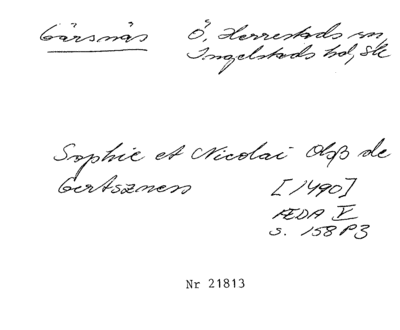 Gärsnäs Ö. Herrestads sn,
Ingelstads hd, Sk
Sophie et Nicolai Olß de
Gertszness [1490]
ÆDA V
s. 158 P3
Nr 21813